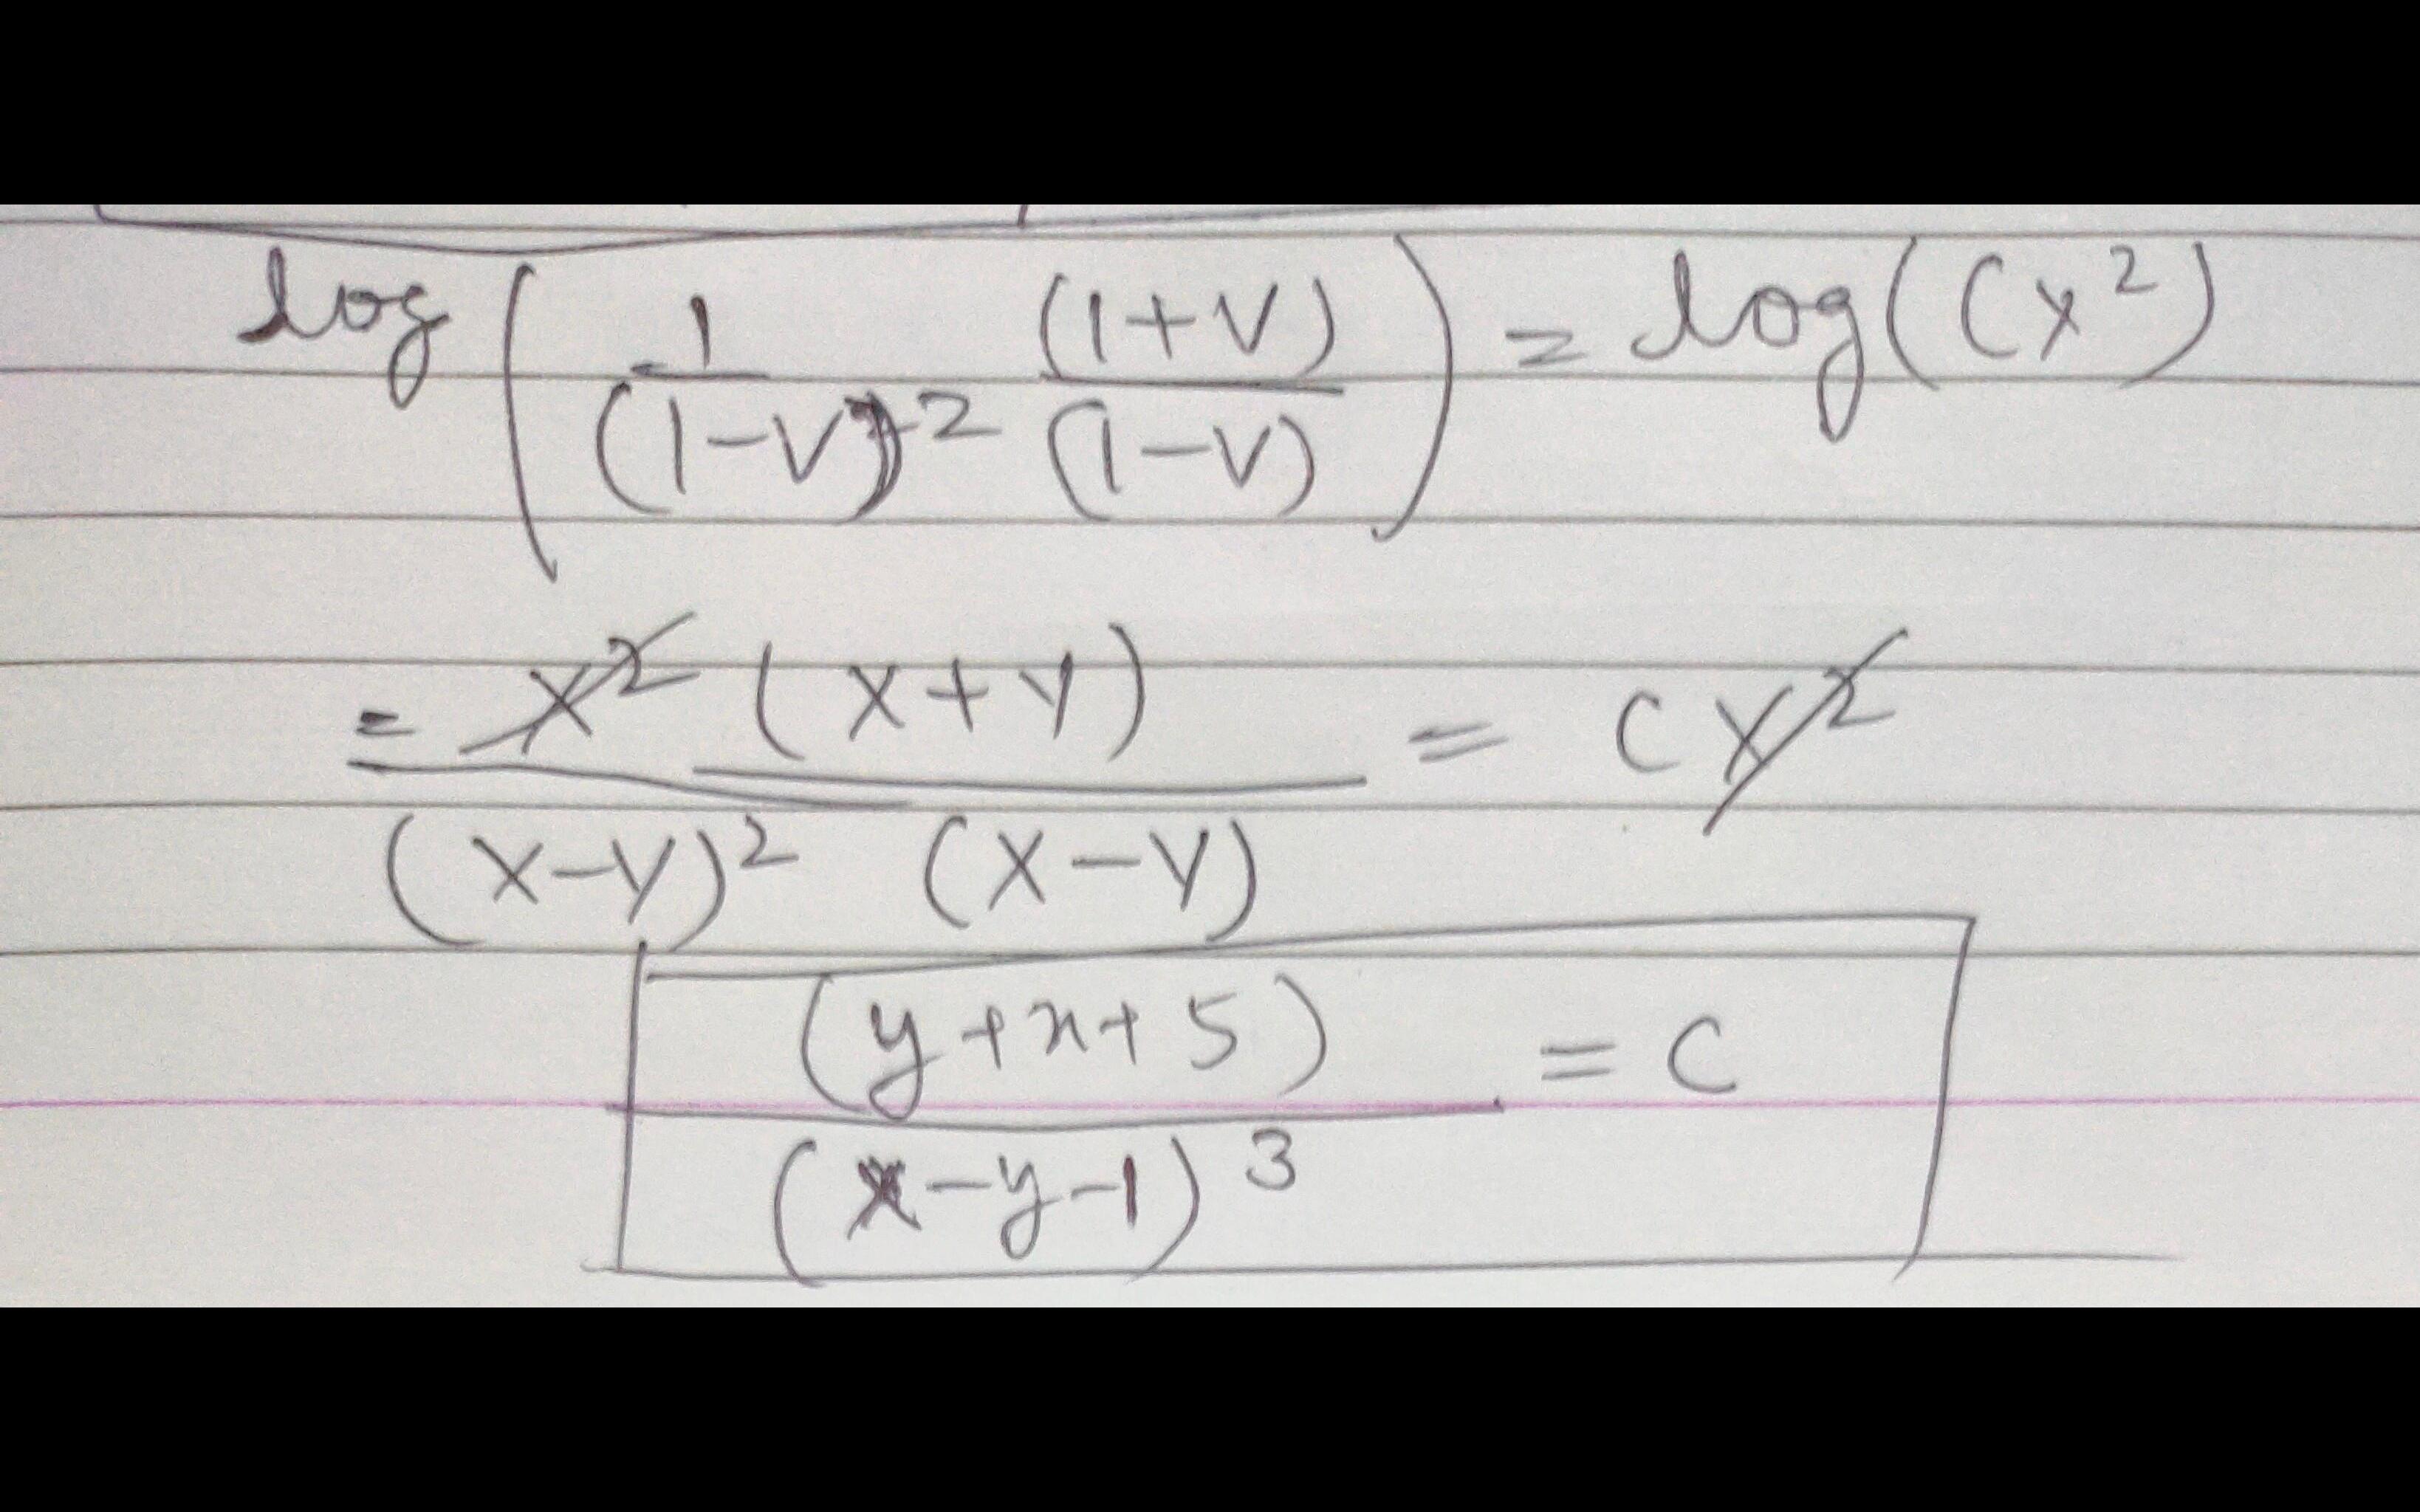 log ( 1/(1-V)² (1+V)/(1-V) ) = log(Cx²)
= X² (X+Y) / (X-Y)² (X-Y) = CX²
(y+x+5) / (x-y-1)³ = C